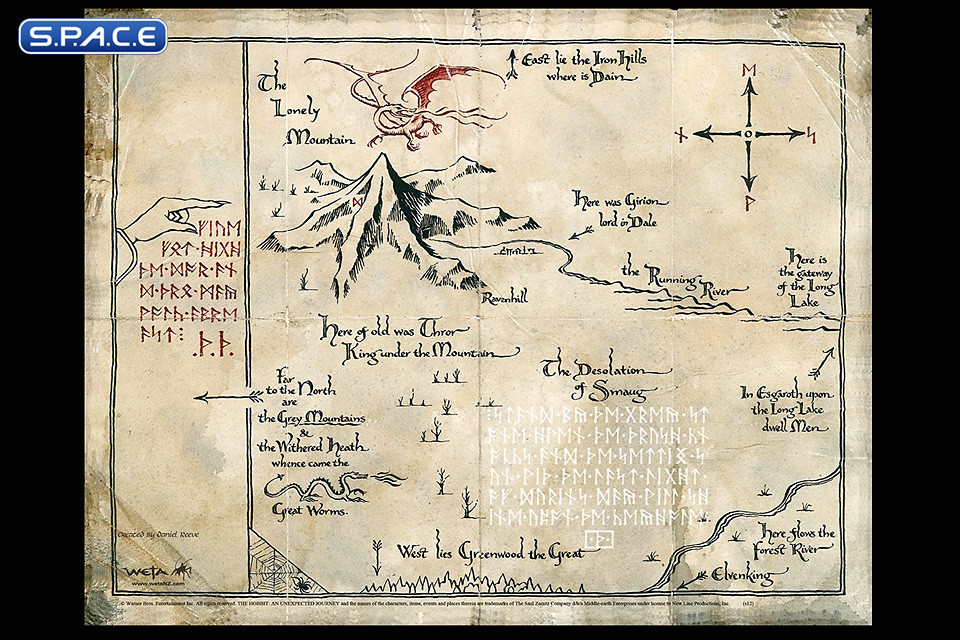 S.P.A.C.E
East lie the Iron Hills
where is Dain
The
Lonely
Mountain
ᛖ
ᚾ
ᛋ
ᚹ
Here was Girion
lord in Dale
ᚠᛁᚢᛖ
ᚠᛟᛏ·ᚻᛁᚷᚻ
ᚦᛖ·ᛞᚩᚱ·ᚪᚾ
ᛞ·ᚦᚱᛟ·ᛗᚪᚣ
ᚹᚪᛚᚳ·ᚪᛒᚱᛖ
ᚪᛋᛏ⁝
.ᚦ.ᚦ.
ᛞ
the Running River
Here is
the gateway
of the Long
Lake
Ravenhill
Here of old was Thror
King under the Mountain
The Desolation
of Smaug
Far
to the North
are
the Grey Mountains
&
the Withered Heath
whence came the
Great Worms.
In Esgaroth upon
the Long Lake
dwell Men
West lies Greenwood the Great
Here flows the
Forest River
Elvenking
Created by Daniel Reeve
WETA
www.wetaNZ.com
© Warner Bros. Entertainment Inc. All rights reserved. THE HOBBIT: AN UNEXPECTED JOURNEY and the names of the characters, items, events and places therein are trademarks of The Saul Zaentz Company d/b/a Middle-earth Enterprises under license to New Line Productions, Inc. (s12)